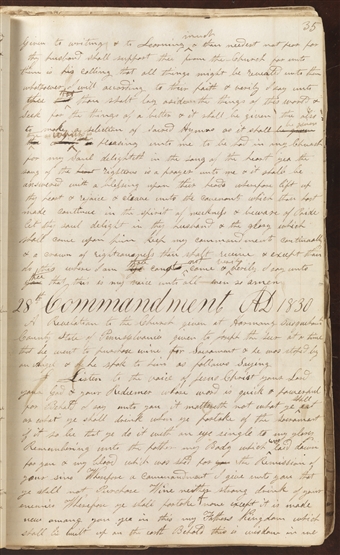 35
given to writing & to Learning much & thou needest not fear for
thy husband shall support thee from the Church for unto
them is his calling that all things might be reveald unto them
whatsoever I will according to their faith & verily I say unto
thee that thou shalt lay aside the things of this world &
seek for the things of a better & it shall be given thee also
to make a selection of Sacred Hymns as it shall be given
thee which is pleasing unto me to be had in my Church
for my Soul delighteth in the song of the heart yea the
song of the righteous is a prayer unto me & it shall be
answered with a blessing upon their heads wherefore lift up
thy heart & rejoice & cleave unto the covenants which thou hast
made continue in the spirit of meekness & beware of Pride
let thy soul delight in thy husband & the glory which
shall come upon him keep my commandments continually
& a crown of righteousness thou shalt receive & except thou
do this where I am ye cannot come & verily I say unto
you that this is my voice unto all amen
28th Commandment AD 1830
A Revelation to the Church given at Harmony Susquehannah
County State of Pennsylvania given to Joseph the Seer at a time
that he went to purchase wine for Sacrament & he was stoped by
an Angel & he spoke to him as follows Saying
Listen to the voice of Jesus Christ your Lord
your God & your Redeemer whose word is quick & powerful
for Behold I say unto you it mattereth not what ye shall eat
or what ye shall drink when ye partake of the Sacrament
if it so be that ye do it with an eye single to my glory
Remembering unto the Father my Body which was laid down
for you & my blood which was shed for the Remission of
your sins Wherefore a Commandment I give unto you that
ye shall not Purchase Wine neither strong drink of your
enemies Wherefore ye shall partake of none except it is made
new among you yea in this my Fathers Kingdom which
shall be built up on the earth Behold this is wisdom in me